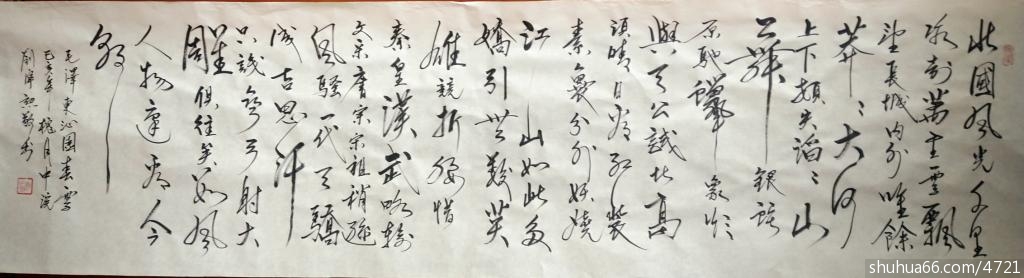 北國風光千里
冰封萬里雪飄
望長城内外唯餘
莽〻大河
上下頓失滔〻山
舞銀蛇
原馳蠟象欲
與天公試比高
須晴日看紅裝
素裹分外妖嬈
江山如此多
嬌引無數英
雄競折腰惜
秦皇漢武略輸
文采唐宗宋祖稍遜
風騷一代天驕
成吉思汗
只識彎弓射大
雕俱往矣數風
人物還看今
朝
毛澤東沁園春雪
己亥年桃月中浣
shuhua66.com/4721